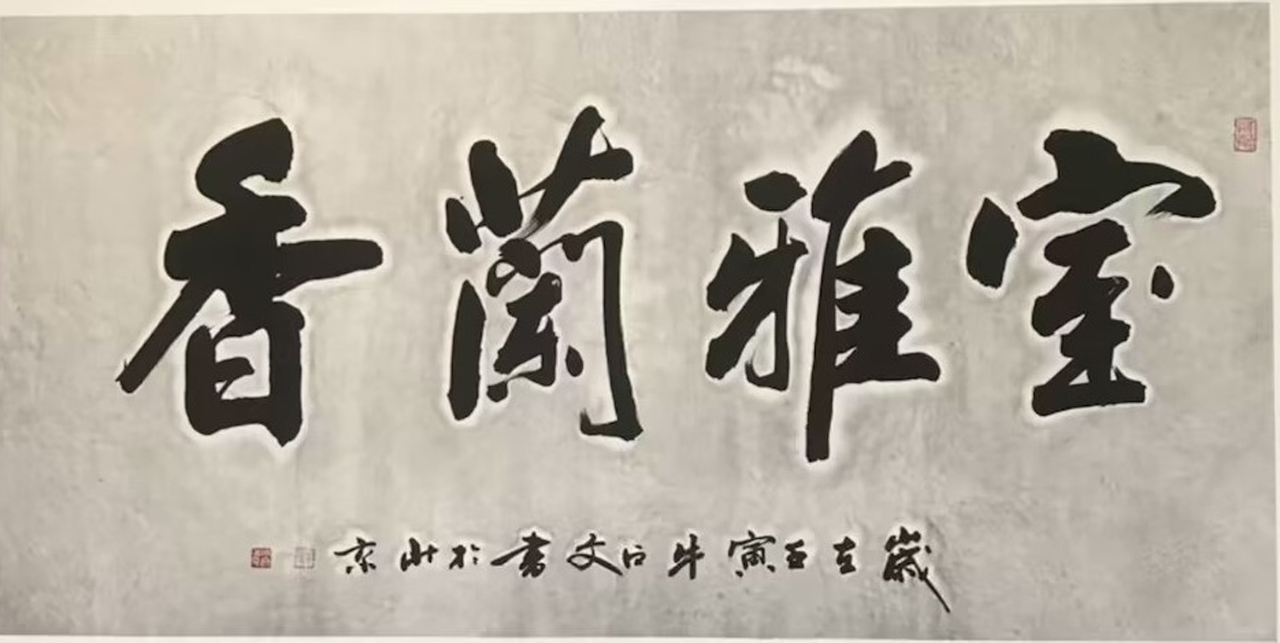 室雅蘭香
歲在壬寅牛文書於北京